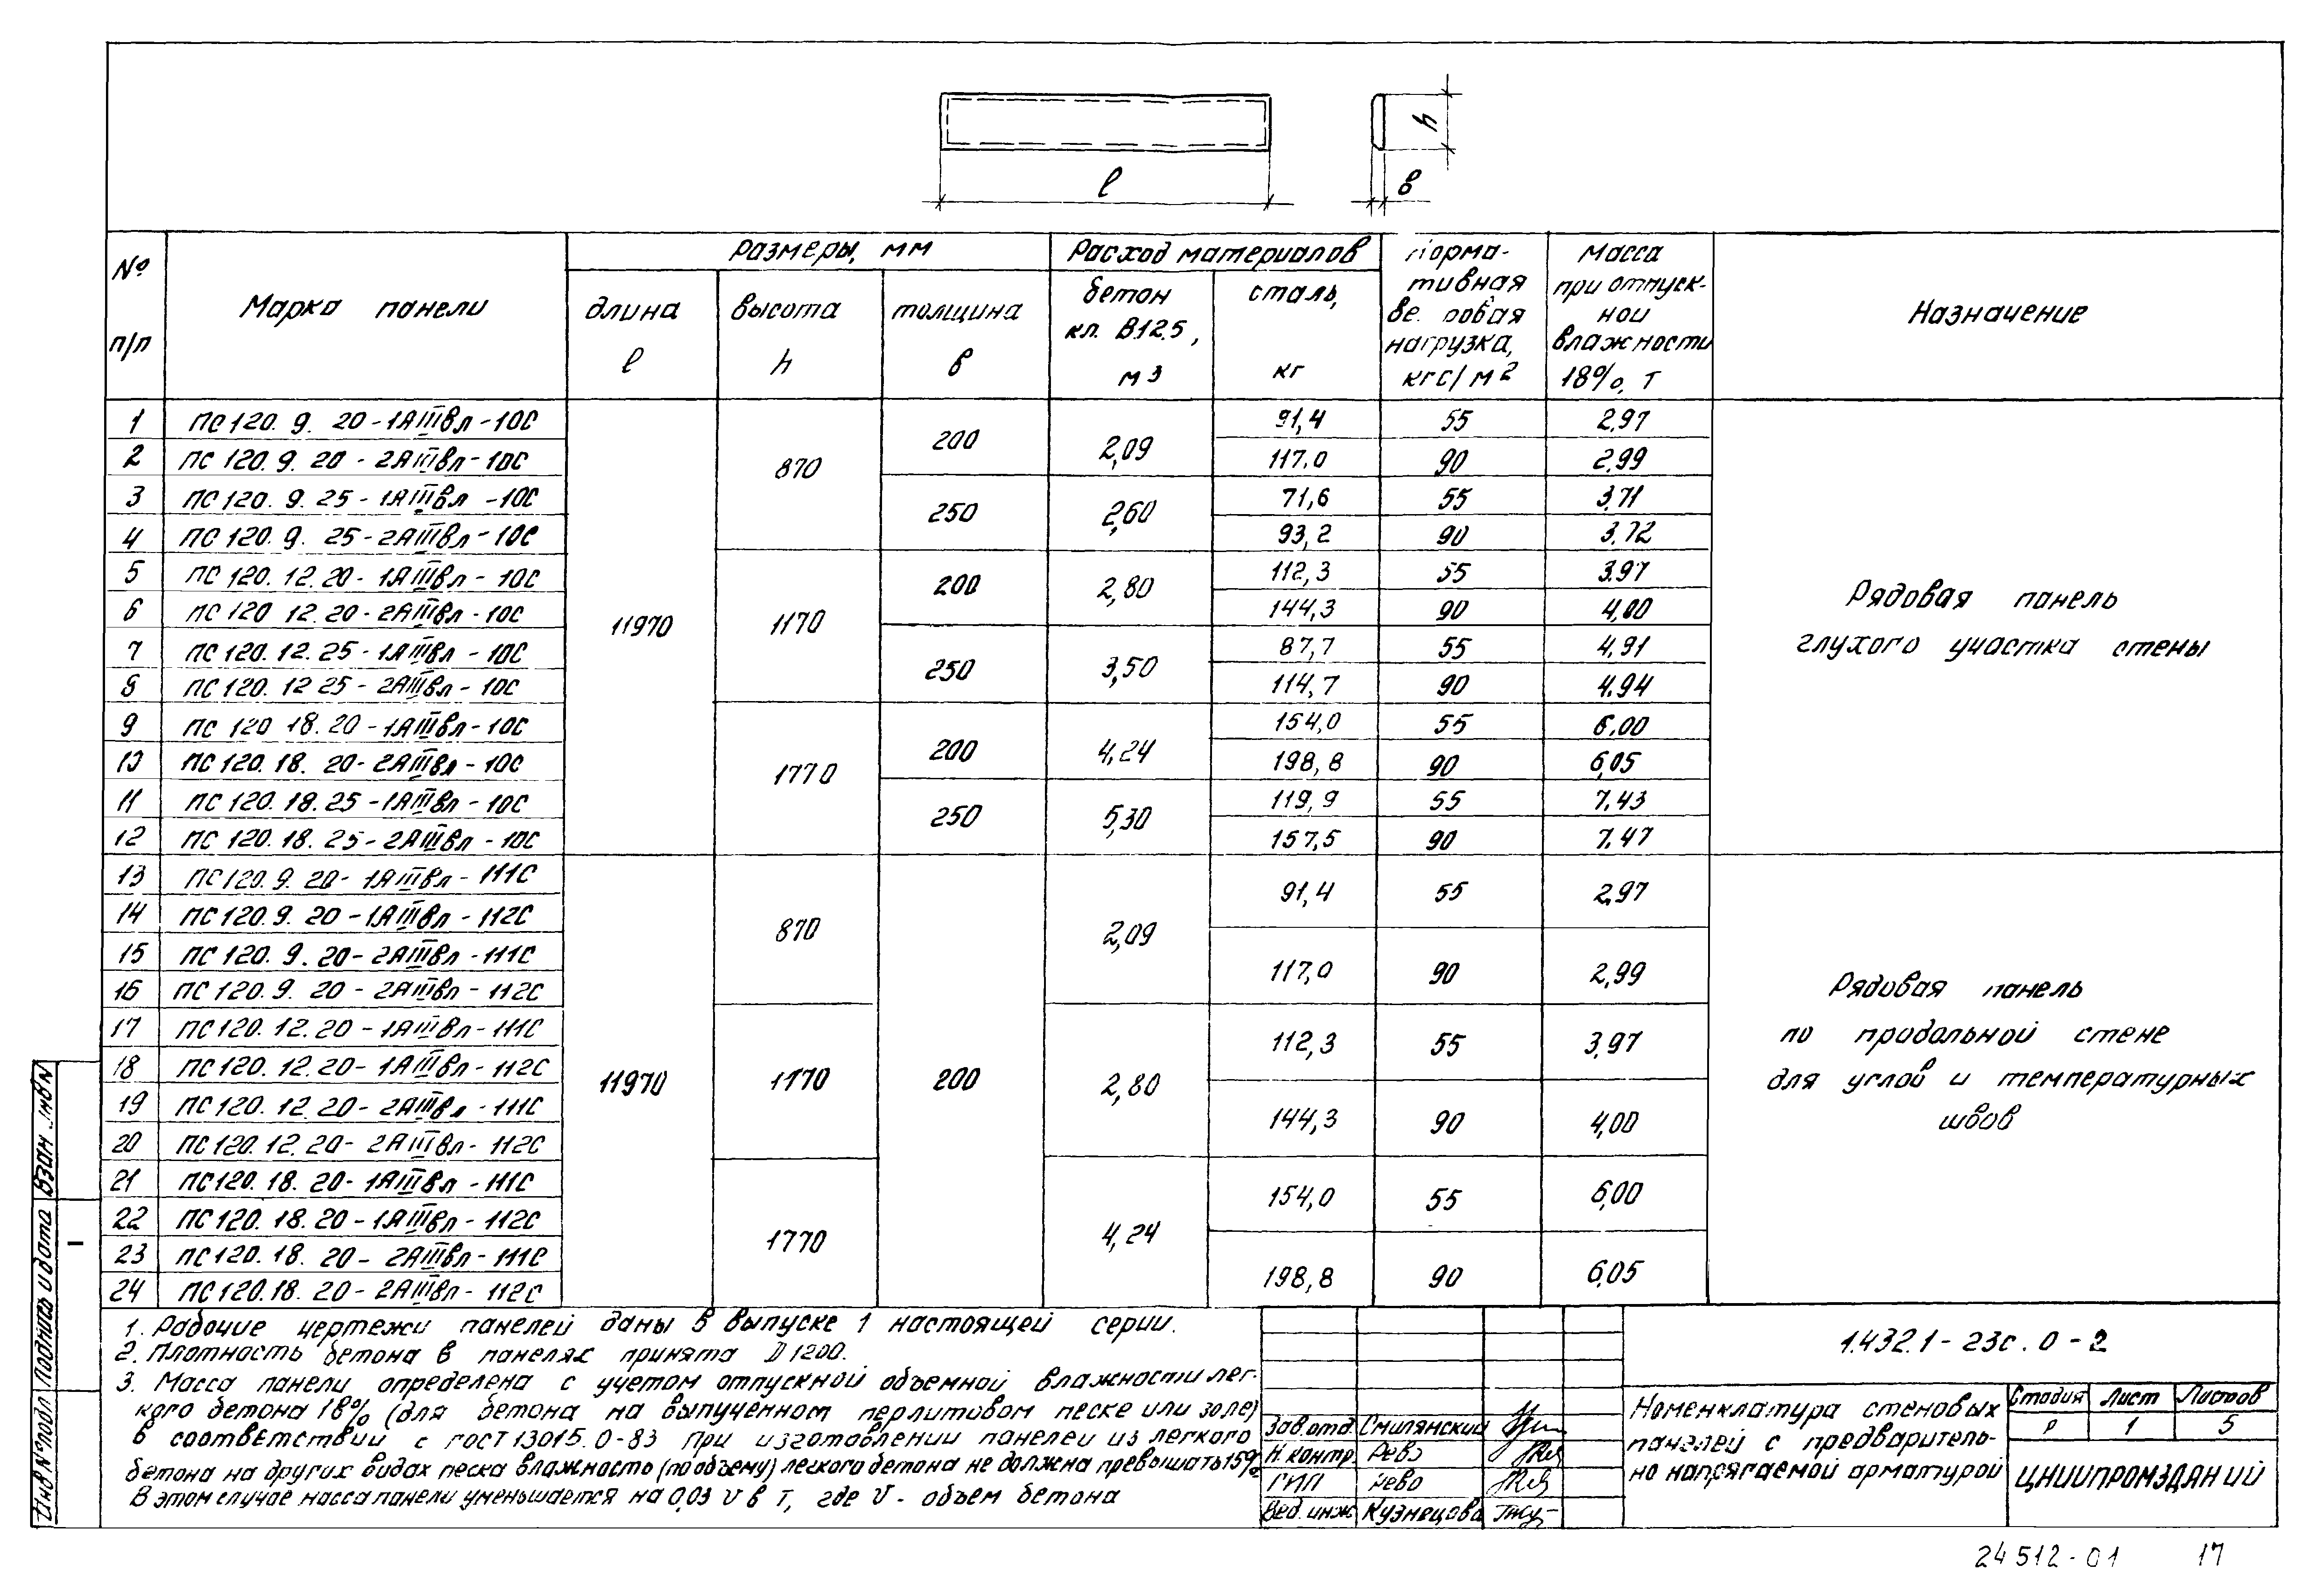 l
h
в
№ п/п
Марка панели
Размеры, мм
длина l
высота h
толщина в
Расход материалов
бетон кл. В12.5, м3
сталь, кг
нагрузка, кгс/м2
Масса при отпускной влажности 18%, т
Назначение
1 ПС120.9.20-1АIIIвл-10С 11970 870 200 2,09 91,4 55 2,97
2 ПС120.9.20-2АIIIвл-10С 117,0 90 2,99
3 ПС120.9.25-1АIIIвл-10С 250 2,60 71,6 55 3,71
4 ПС120.9.25-2АIIIвл-10С 93,2 90 3,72
5 ПС120.12.20-1АIIIвл-10С 1170 200 2,80 112,3 55 3,97
6 ПС120 12.20-2АIIIвл-10С 144,3 90 4,00
7 ПС120.12.25-1АIIIвл-10С 250 3,50 87,7 55 4,91
8 ПС120.12 25-2АIIIвл-10С 114,7 90 4,94
9 ПС120 18.20-1АIIIвл-10С 1770 200 4,24 154,0 55 6,00
10 ПС120.18.20-2АIIIвл-10С 198,8 90 6,05
11 ПС120.18.25-1АIIIвл-10С 250 5,30 119,9 55 7,43
12 ПС120.18.25-2АIIIвл-10С 157,5 90 7,47
Рядовая панель
глухого участка стены
13 ПС120.9.20-1АIIIвл-111С 11970 870 200 2,09 91,4 55 2,97
14 ПС120.9.20-1АIIIвл-112С
15 ПС120.9.20-2АIIIвл-111С 117,0 90 2,99
16 ПС120.9.20-2АIIIвл-112С
17 ПС120.12.20-1АIIIвл-111С 1170 2,80 112,3 55 3,97
18 ПС120.12.20-1АIIIвл-112С
19 ПС120.12.20-2АIIIвл-111С 144,3 90 4,00
20 ПС120.12.20-2АIIIвл-112С
21 ПС120.18.20-1АIIIвл-111С 1770 4,24 154,0 55 6,00
22 ПС120.18.20-1АIIIвл-112С
23 ПС120.18.20-2АIIIвл-111С 198,8 90 6,05
24 ПС120.18.20-2АIIIвл-112С
Рядовая панель
по продольной стене
для углов и температурных
швов
1. Рабочие чертежи панелей даны в выпуске 1 настоящей серии.
2. Плотность бетона в панелях принята D1200.
3. Масса панели определена с учетом отпускной объемной влажности лег-
кого бетона 18% (для бетона на выпученном перлитовом песке или золе)
в соответствии с ГОСТ 13015.0-83 При изготовлении панелей из легкого
бетона на других видах песка влажность (по объему) легкого бетона не должна превышать 15%
В этом случае масса панели уменьшается на 0,03 V в т, где V - объем бетона
Зав.отд. Смилянский
Н.контр. Рево
ГИП Рево
Вед.инж. Кузнецова
1.432.1-23с.0-2
Номенклатура стеновых
панелей с предваритель-
но напрягаемой арматурой
Стадия Лист Листов
Р 1 5
ЦНИИПРОМЗДАНИЙ
Инв № подл Подпись и дата Взам. инв N
24512-01 17